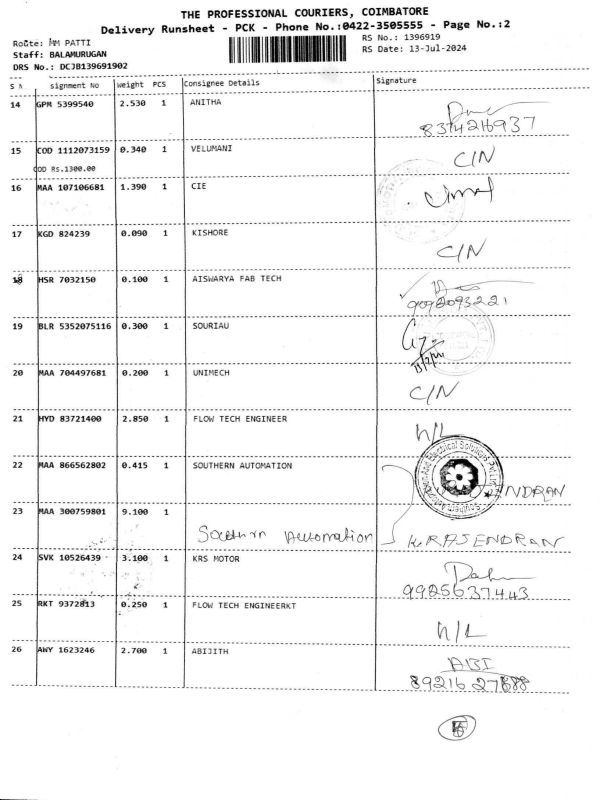 THE PROFESSIONAL COURIERS, COIMBATORE
Delivery Runsheet - PCK - Phone No.:0422-3505555 - Page No.:2
Route: MM PATTI
RS No.: 1396919
Staff: BALAMURUGAN
RS Date: 13-Jul-2024
DRS No.: DCJB139691902
S N. signment No Weight PCS Consignee Details Signature
14 GPM 5399540 2.530 1 ANITHA
8374216937
15 COD 1112073159 0.340 1 VELUMANI C/N
COD RS.1300.00
16 MAA 107106681 1.390 1 CIE
17 KGD 824239 0.090 1 KISHORE C/N
18 HSR 7032150 0.100 1 AISWARYA FAB TECH
9092093221
19 BLR 5352075116 0.300 1 SOURIAU
20 MAA 704497681 0.200 1 UNIMECH C/N
21 HYD 83721400 2.850 1 FLOW TECH ENGINEER N/L
22 MAA 866562802 0.415 1 SOUTHERN AUTOMATION
Southern Automation And Electrical Solutions Pvt Ltd
23 MAA 300759801 9.100 1 Southrn Automation K RAJENDRAN
24 SVK 10526439 3.100 1 KRS MOTOR
9925637443
25 RKT 9372813 0.250 1 FLOW TECH ENGINEERKT N/L
26 AWY 1623246 2.700 1 ABIJITH ABI
89216 27888